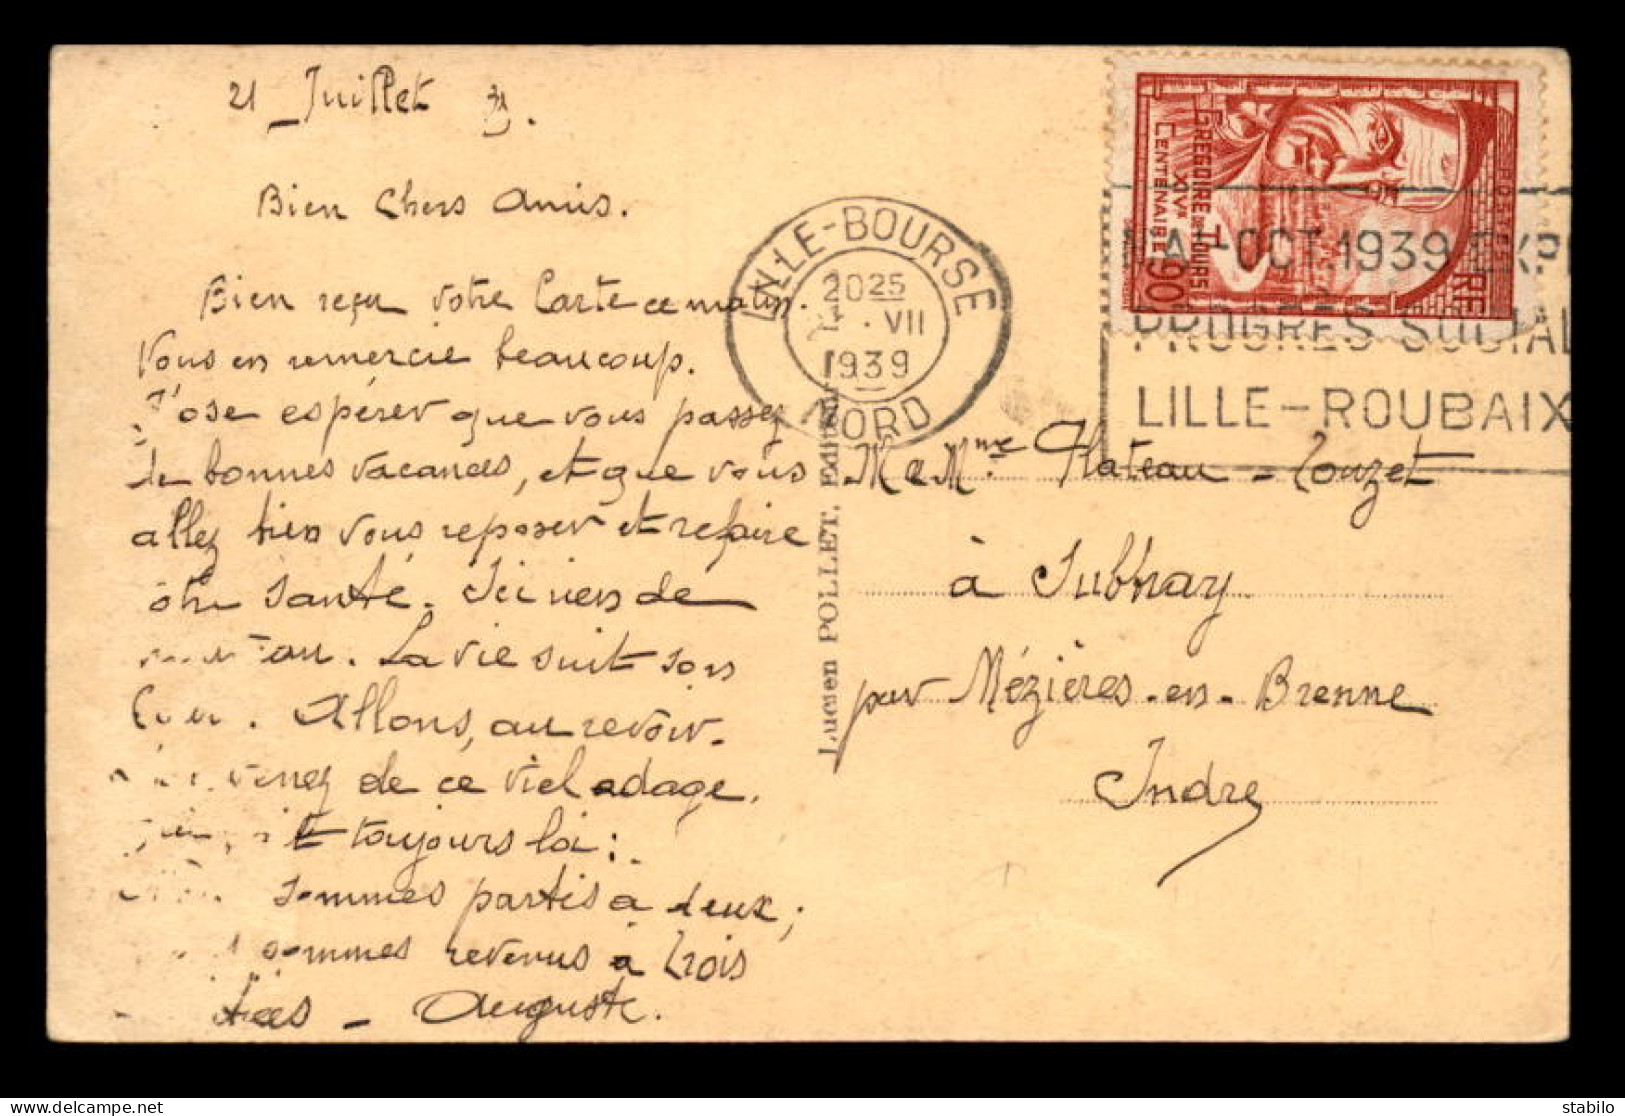 21 Juillet 39.
Bien Chers Amis.
Bien reçu votre Carte ce matin.
Vous en remercie beaucoup.
J'ose espérer que vous passez
de bonnes vacances, et que vous
allez bien vous reposer et refaire
otre santé. Ici rien de
La vie suit son
Allons, au revoir.
venez de ce vieil adage,
toujours loi :
sommes partis à deux ;
sommes revenus à trois
Auguste.
LILLE-BOURSE
2025
VII
1939
NORD
POSTES
RF
GREGOIRE DE TOURS
XIVe
CENTENAIRE
90c
MAI-OCT.1939 EXP
PROGRÈS SOCIAL
LILLE-ROUBAIX
Lucien POLLET, Editeur
M & Mme Plateau - Touzet
à Subtray
par Mézières-en-Brenne
Indre
stabilo